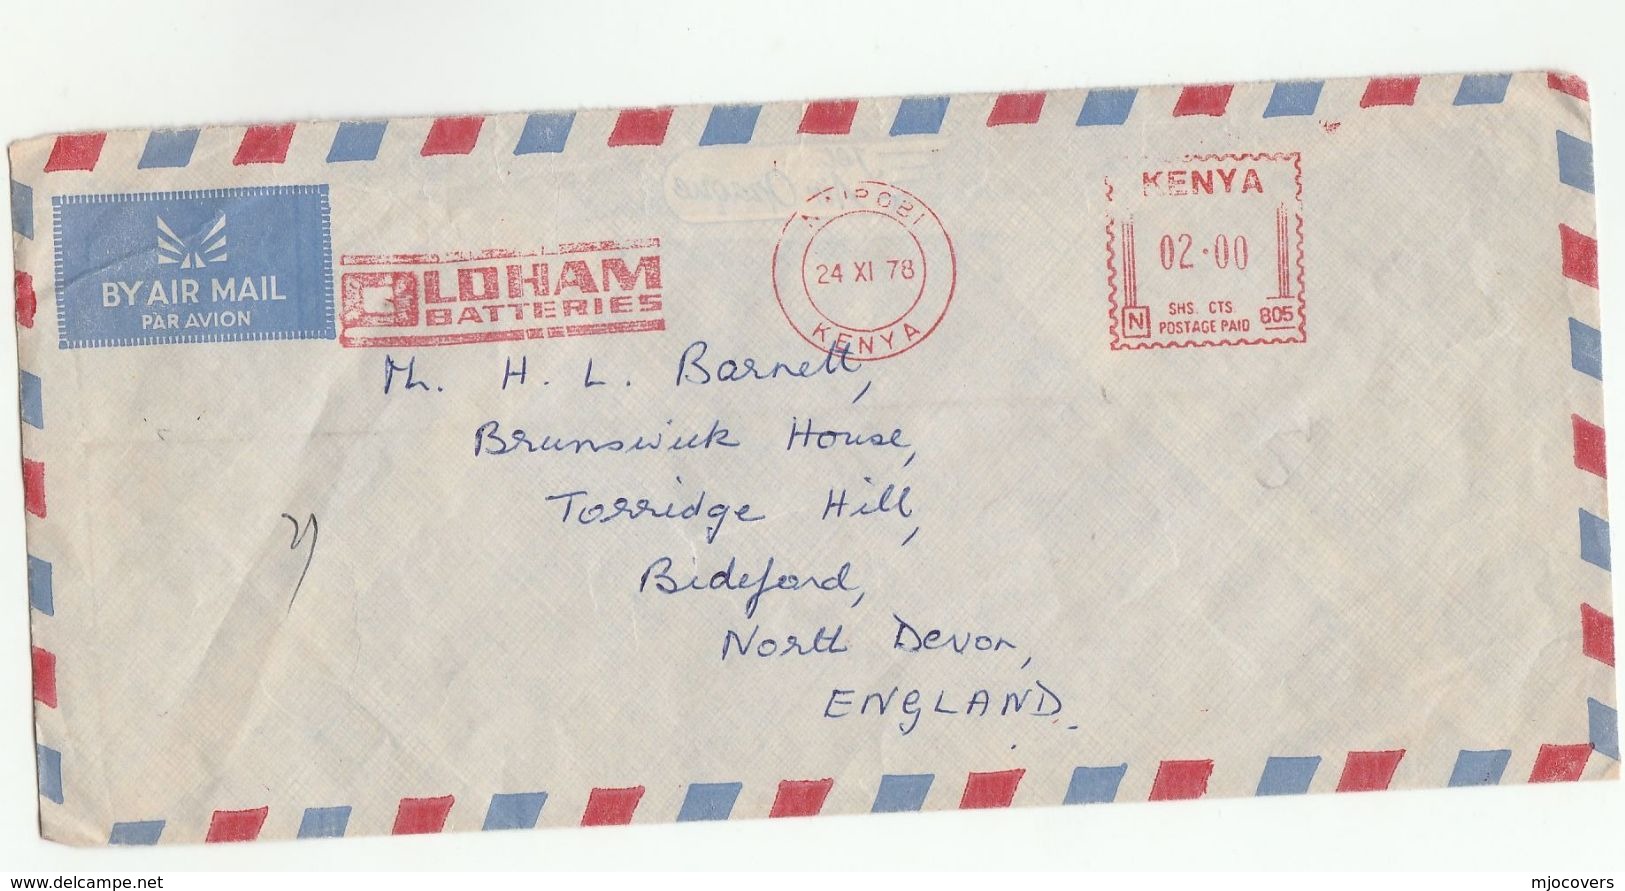 BY AIR MAIL
PAR AVION
OLDHAM
BATTERIES
NAIROBI
24 XI 78
KENYA
KENYA
02·00
SHS. CTS.
N POSTAGE PAID 805
Mr. H. L. Barnett,
Brunswick House,
Torridge Hill,
Bideford,
North Devon,
ENGLAND.
www.delcampe.net
mjocovers